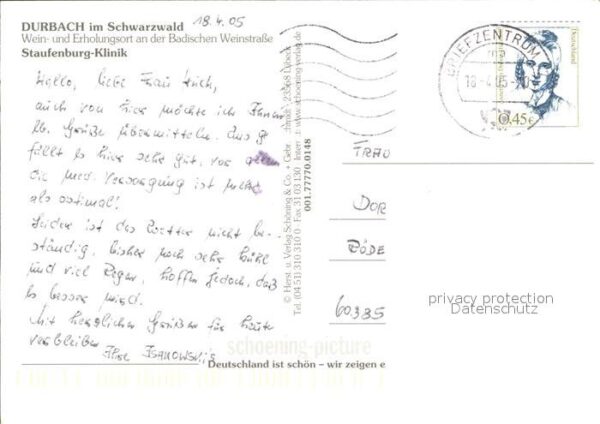 DURBACH im Schwarzwald
Wein- und Erholungsort an der Badischen Weinstraße
Staufenburg-Klinik
18.4.05
Hallo, liebe Frau
auch von hier möchte ich Ihnen
lb. Grüße übermitteln. Uns g
fällt es hier sehr gut, vor allem
die med. Versorgung ist mehr
als optimal!
Leider ist das Wetter nicht be-
ständig, bisher noch sehr kühl
und viel Regen, hoffen jedoch, daß
es besser wird.
Mit herzlichen Grüßen für heute
verbleiben
© Herst. u. Verlag Schöning & Co. + Gebr. Schmidt, 23558 Lübeck
Tel. (04 51) 310 310 0 · Fax 31 03 130 · Internet: www.schoening-verlag.de
001.77770.0148
BRIEFZENTRUM
18-4.05
Deutschland
0,45€
FRAU
DOR
RÖDE
60385
privacy protection
Datenschutz
schoening-picture
Deutschland ist schön – wir zeigen e